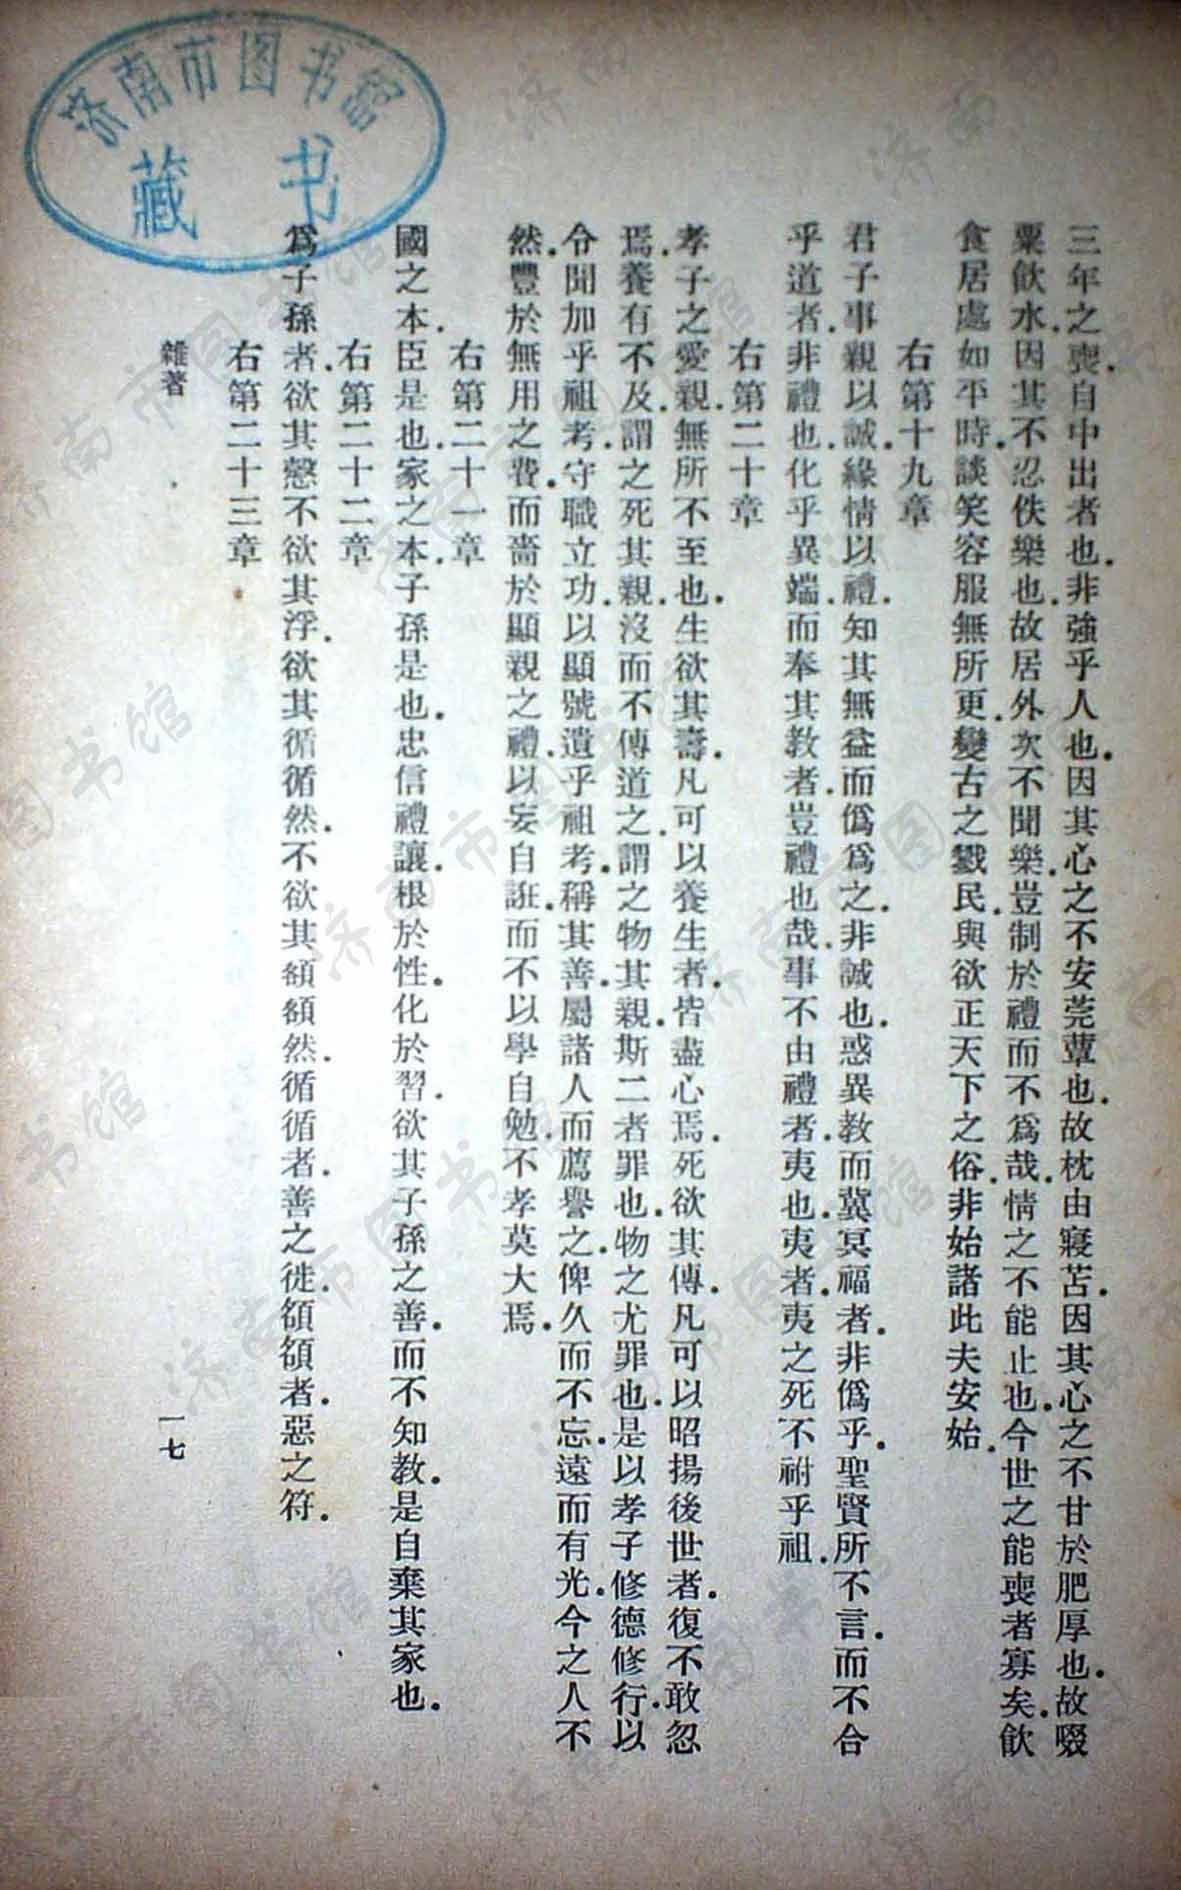 济南市图书馆
藏书
三年之喪.自中出者也.非強乎人也.因其心之不安莞蕈也.故枕由寢苫.因其心之不甘於肥厚也.故啜
粟飲水.因其不忍佚樂也.故居外次不聞樂.豈制於禮而不爲哉.情之不能止也.今世之能喪者寡矣.飲
食居處如平時.談笑容服無所更變.古之戮民.與欲正天下之俗.非始諸此夫安始.
右第十九章
君子事親以誠.緣情以禮.知其無益而僞爲之.非誠也.惑異教而冀冥福者.非僞乎.聖賢所不言.而不合
乎道者.非禮也.化乎異端.而奉其教者.豈禮也哉.事不由禮者.夷也.夷者.夷之死不祔乎祖.
右第二十章
孝子之愛親.無所不至也.生欲其壽.凡可以養生者.皆盡心焉.死欲其傳.凡可以昭揚後世者.復不敢忽
焉.養有不及.謂之死其親.沒而不傳道之.謂之物其親.斯二者罪也.物之尤罪也.是以孝子修德修行.以
令聞加乎祖考.守職立功.以顯號遺乎祖考.稱其善.屬諸人而薦譽之.俾久而不忘.遠而有光.今之人不
然.豐於無用之費.而嗇於顯親之禮.以妄自誑.而不以學自勉.不孝莫大焉.
右第二十一章
國之本.臣是也.家之本.子孫是也.忠信禮讓.根於性.化於習.欲其子孫之善.而不知教.是自棄其家也.
右第二十二章
爲子孫者.欲其愨不欲其浮.欲其循循然.不欲其額額然.循循者.善之徙.額額者.惡之符.
右第二十三章
雜著
一七